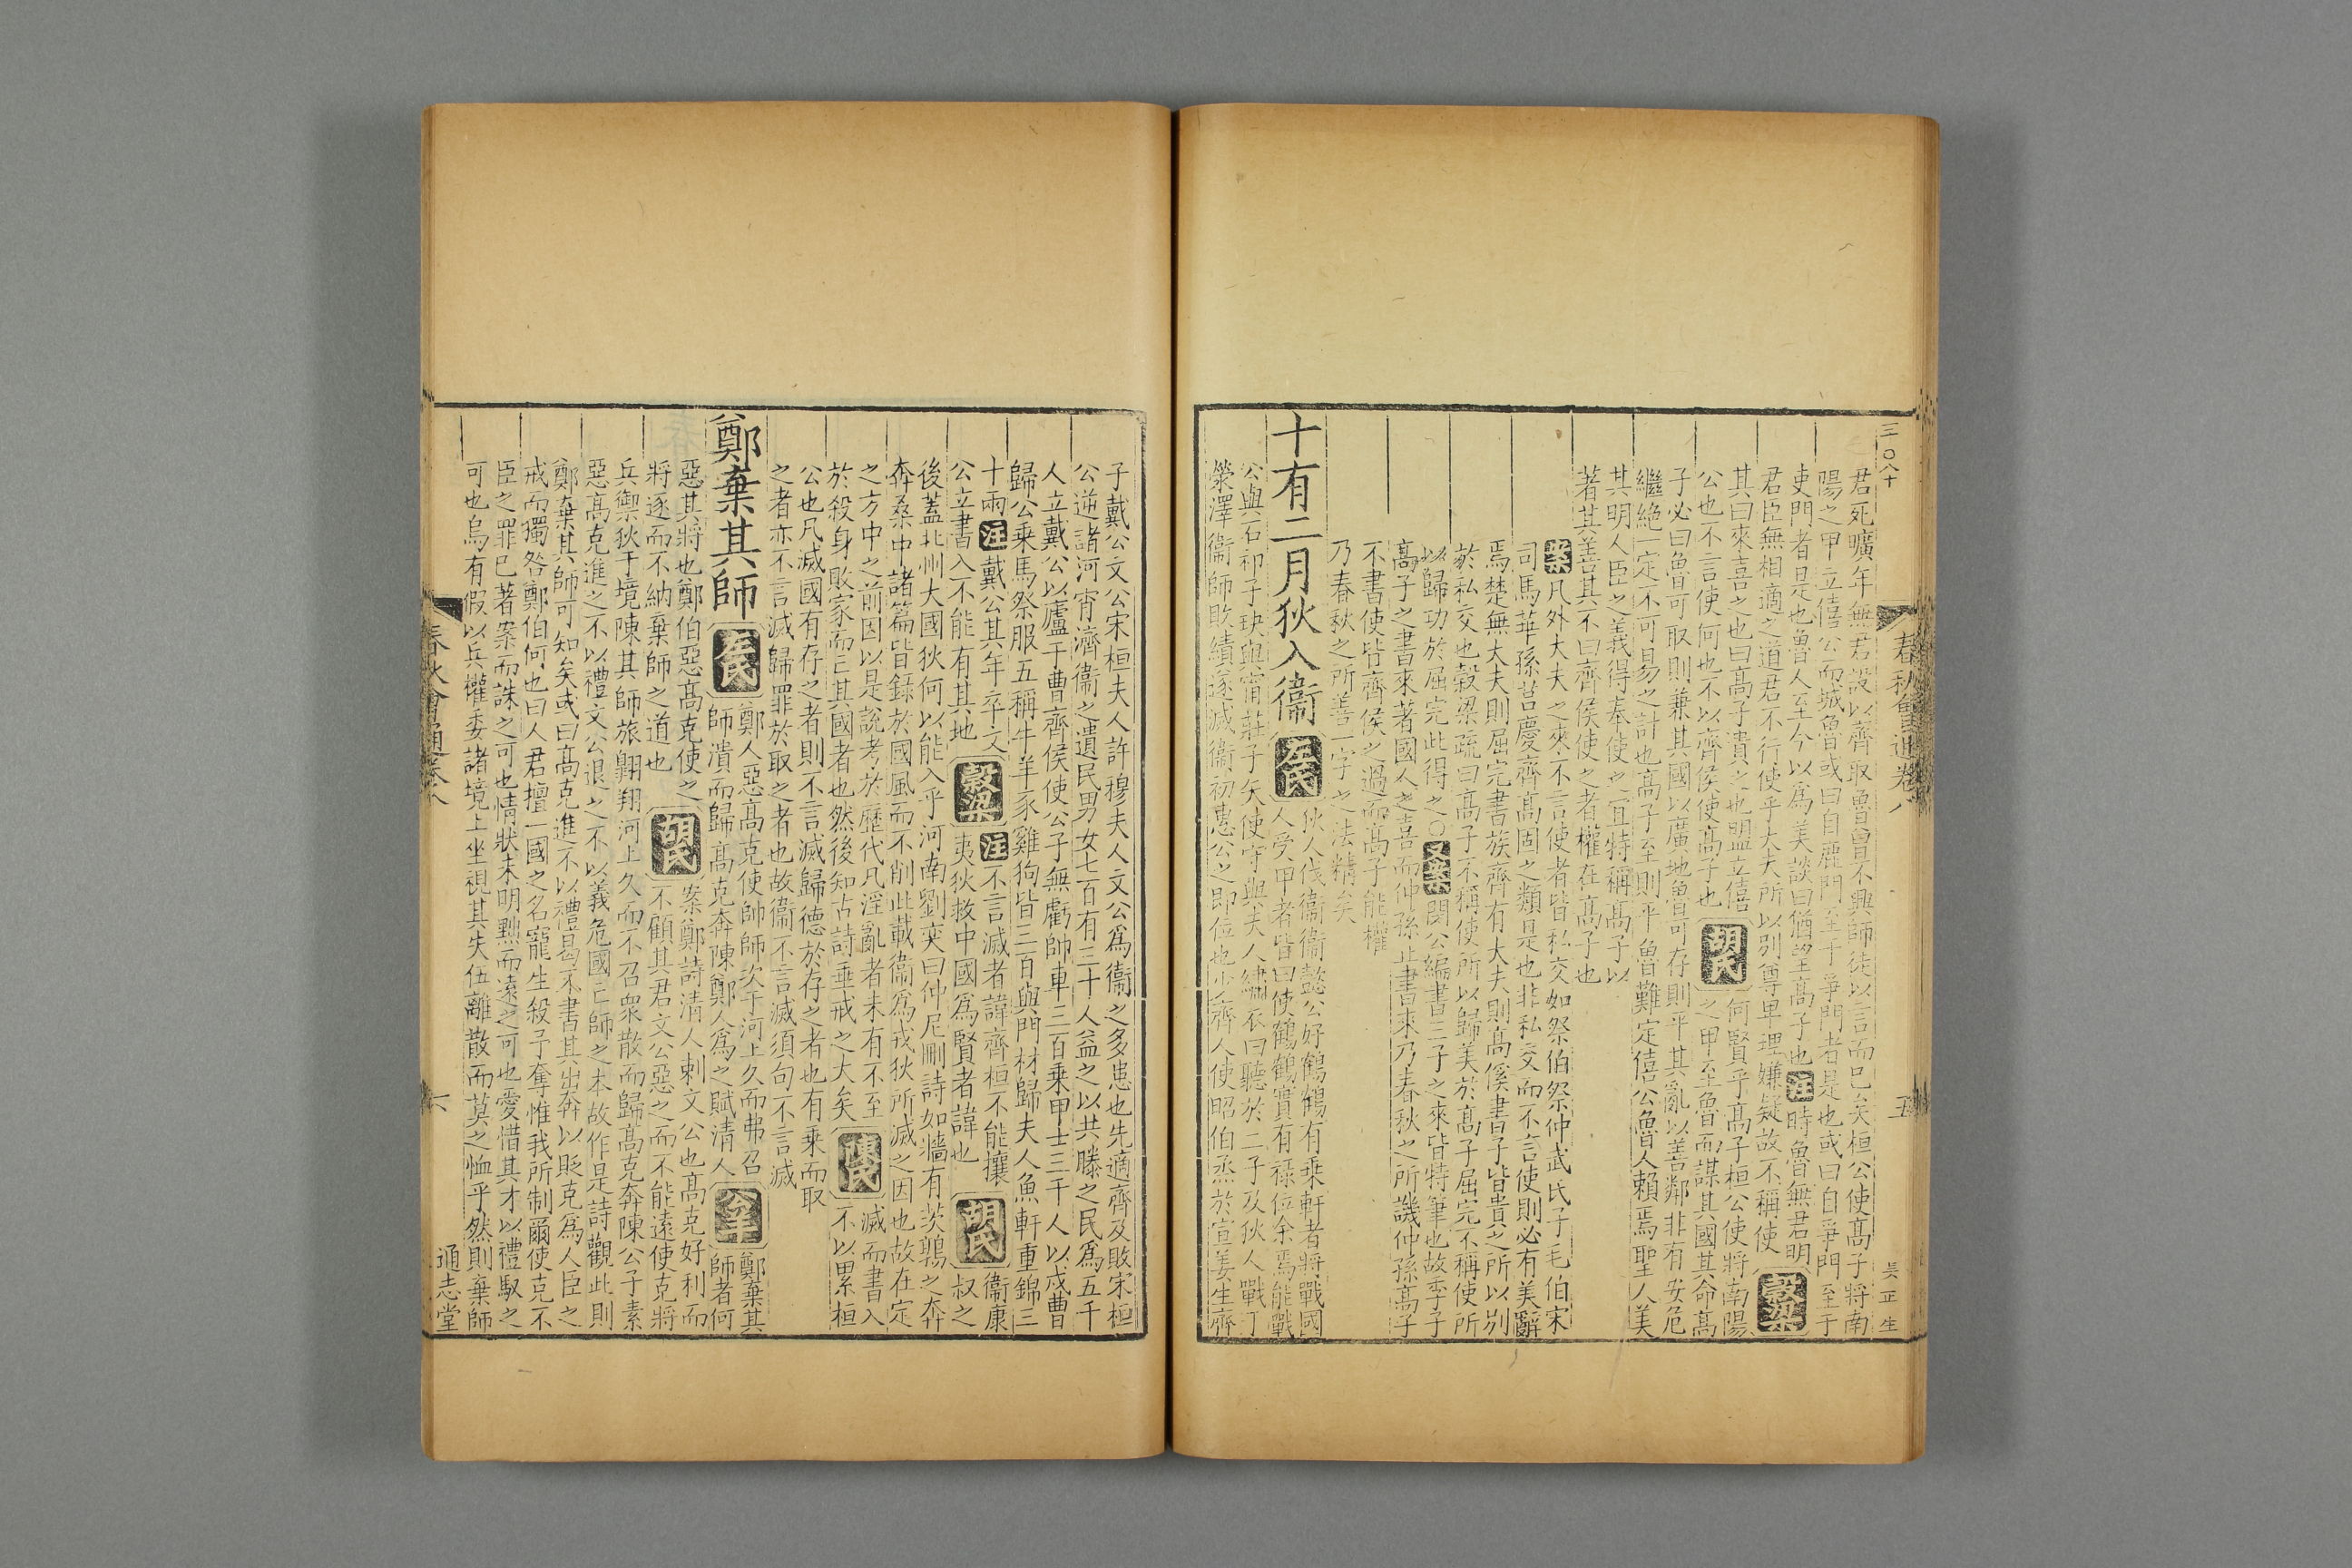 三〇八十
春秋會通卷八
五
吳正生
君死曠年無君設以齊取魯曾不興師徒以言而已矣桓公使高子將南
陽之甲立僖公而城魯或曰自鹿門至于爭門者是也或曰自爭門至于
吏門者是也魯人至今以爲美談曰猶望高子也注時魯無君明
君臣無相適之道君不行使乎大夫所以別尊卑理嫌疑故不稱使穀梁
其曰來喜之也曰高子貴之也盟立僖
公也不言使何也不以齊侯使高子也胡氏何賢乎高子桓公使將南陽
之甲至魯而謀其國其命高
子必曰魯可取則兼其國以廣地魯可存則平其亂以善鄰非有安危
繼絶一定不可易之計也高子至則平魯難定僖公魯人賴焉聖人美
其明人臣之義得奉使之宜特稱高子以
著其善其不曰齊侯使之者權在高子也
案凡外大夫之來不言使者皆私交如祭伯祭仲武氏子毛伯宋
司馬華孫莒慶齊高固之類是也非私交而不言使則必有美辭
焉楚無大夫則屈完書族齊有大夫則高傒書子皆貴之所以別
於私交也穀梁疏曰高子不稱使所以歸美於高子屈完不稱使所
以歸功於屈完此得之〇又案閔公編書三子之來皆特筆也故季子
高子之書來著國人之喜而仲孫止書來乃春秋之所譏仲孫高子
不書使皆齊侯之過而高子能權
乃春秋之所善一字之法精矣
十有二月狄入衞左氏狄人伐衞衞懿公好鶴鶴有乘軒者將戰國
人受甲者皆曰使鶴鶴實有祿位余焉能戰
公與石祁子玦與甯莊子矢使守與夫人繡衣曰聽於二子及狄人戰于
滎澤衞師敗績遂滅衞初惠公之即位也少齊人使昭伯烝於宣姜生齊
子戴公文公宋桓夫人許穆夫人文公爲衞之多患也先適齊及敗宋桓
公逆諸河宵濟衞之遺民男女七百有三十人益之以共滕之民爲五千
人立戴公以廬于曹齊侯使公子無虧帥車三百乘甲士三千人以戍曹
歸公乘馬祭服五稱牛羊豕雞狗皆三百與門材歸夫人魚軒重錦三
十兩注戴公其年卒文
公立書入不能有其地穀梁注不言滅者諱齊桓不能攘
夷狄救中國爲賢者諱也胡氏衞康
叔之
後蓋北州大國狄何以能入乎河南劉奕曰仲尼刪詩如牆有茨鶉之奔
奔桑中諸篇皆錄於國風而不削此載衞爲戎狄所滅之因也故在定
之方中之前因以是說考於歷代凡淫亂者未有不至
於殺身敗家而亡其國者也然後知古詩垂戒之大矣陳氏滅而書入
不以累桓
公也凡滅國有存之者則不言滅歸德於存之者也有乘而取
之者亦不言滅歸罪於取之者也故衞不言滅須句不言滅
鄭棄其師左氏鄭人惡高克使帥師次于河上久而弗召
師潰而歸高克奔陳鄭人爲之賦清人公羊鄭棄其
師者何
惡其將也鄭伯惡高克使之
將逐而不納棄師之道也胡氏案鄭詩清人刺文公也高克好利而
不顧其君文公惡之而不能遠使克將
兵禦狄于境陳其師旅翱翔河上久而不召衆散而歸高克奔陳公子素
惡高克進之不以禮文公退之不以義危國亡師之本故作是詩觀此則
鄭棄其師可知矣或曰高克進不以禮曷不書其出奔以貶克爲人臣之
戒而獨咎鄭伯何也曰人君擅一國之名寵生殺予奪惟我所制爾使克不
臣之罪已著案而誅之可也情狀未明黜而遠之可也愛惜其才以禮馭之
可也烏有假以兵權委諸境上坐視其失伍離散而莫之恤乎然則棄師
春秋會通卷八
六
通志堂